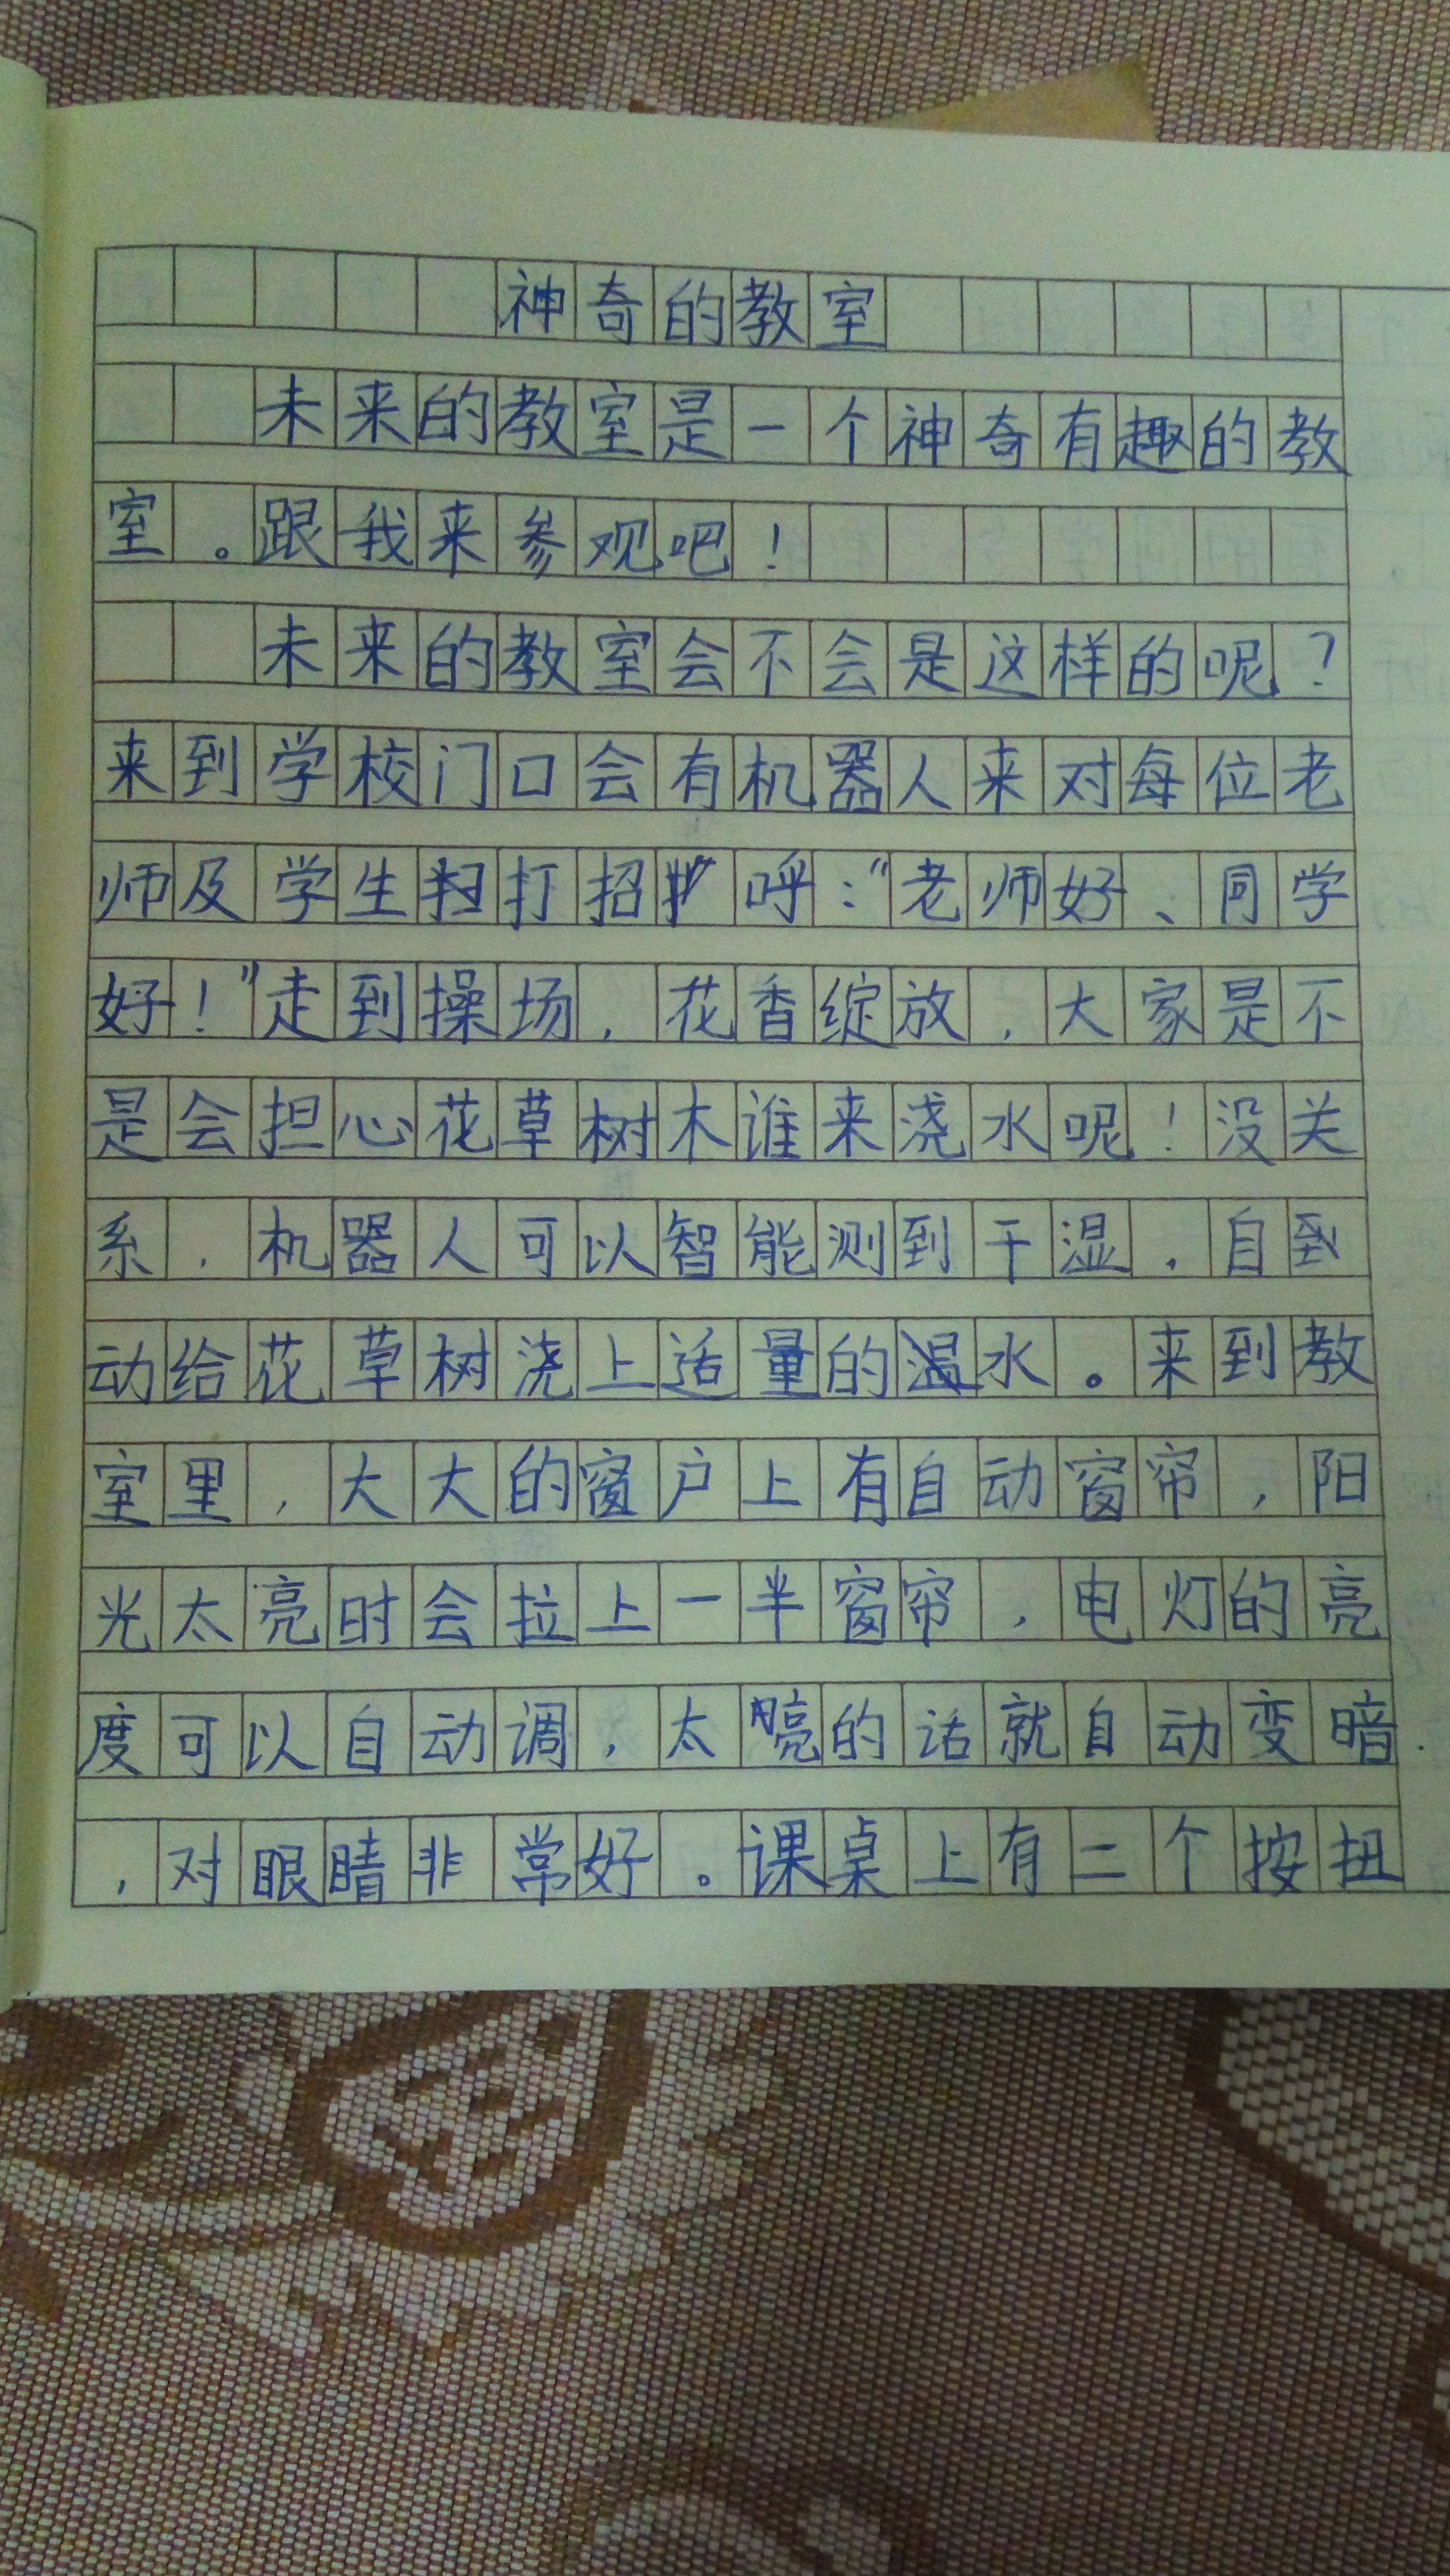 神奇的教室
未来的教室是一个神奇有趣的教
室。跟我来参观吧！
未来的教室会不会是这样的呢？
来到学校门口会有机器人来对每位老
师及学生打招呼：“老师好、同学
好！”走到操场，花香绽放，大家是不
是会担心花草树木谁来浇水呢！没关
系，机器人可以智能测到干湿，自
动给花草树浇上适量的水。来到教
室里，大大的窗户上有自动窗帘，阳
光太亮时会拉上一半窗帘，电灯的亮
度可以自动调，太亮的话就自动变暗.
，对眼睛非常好。课桌上有二个按扭